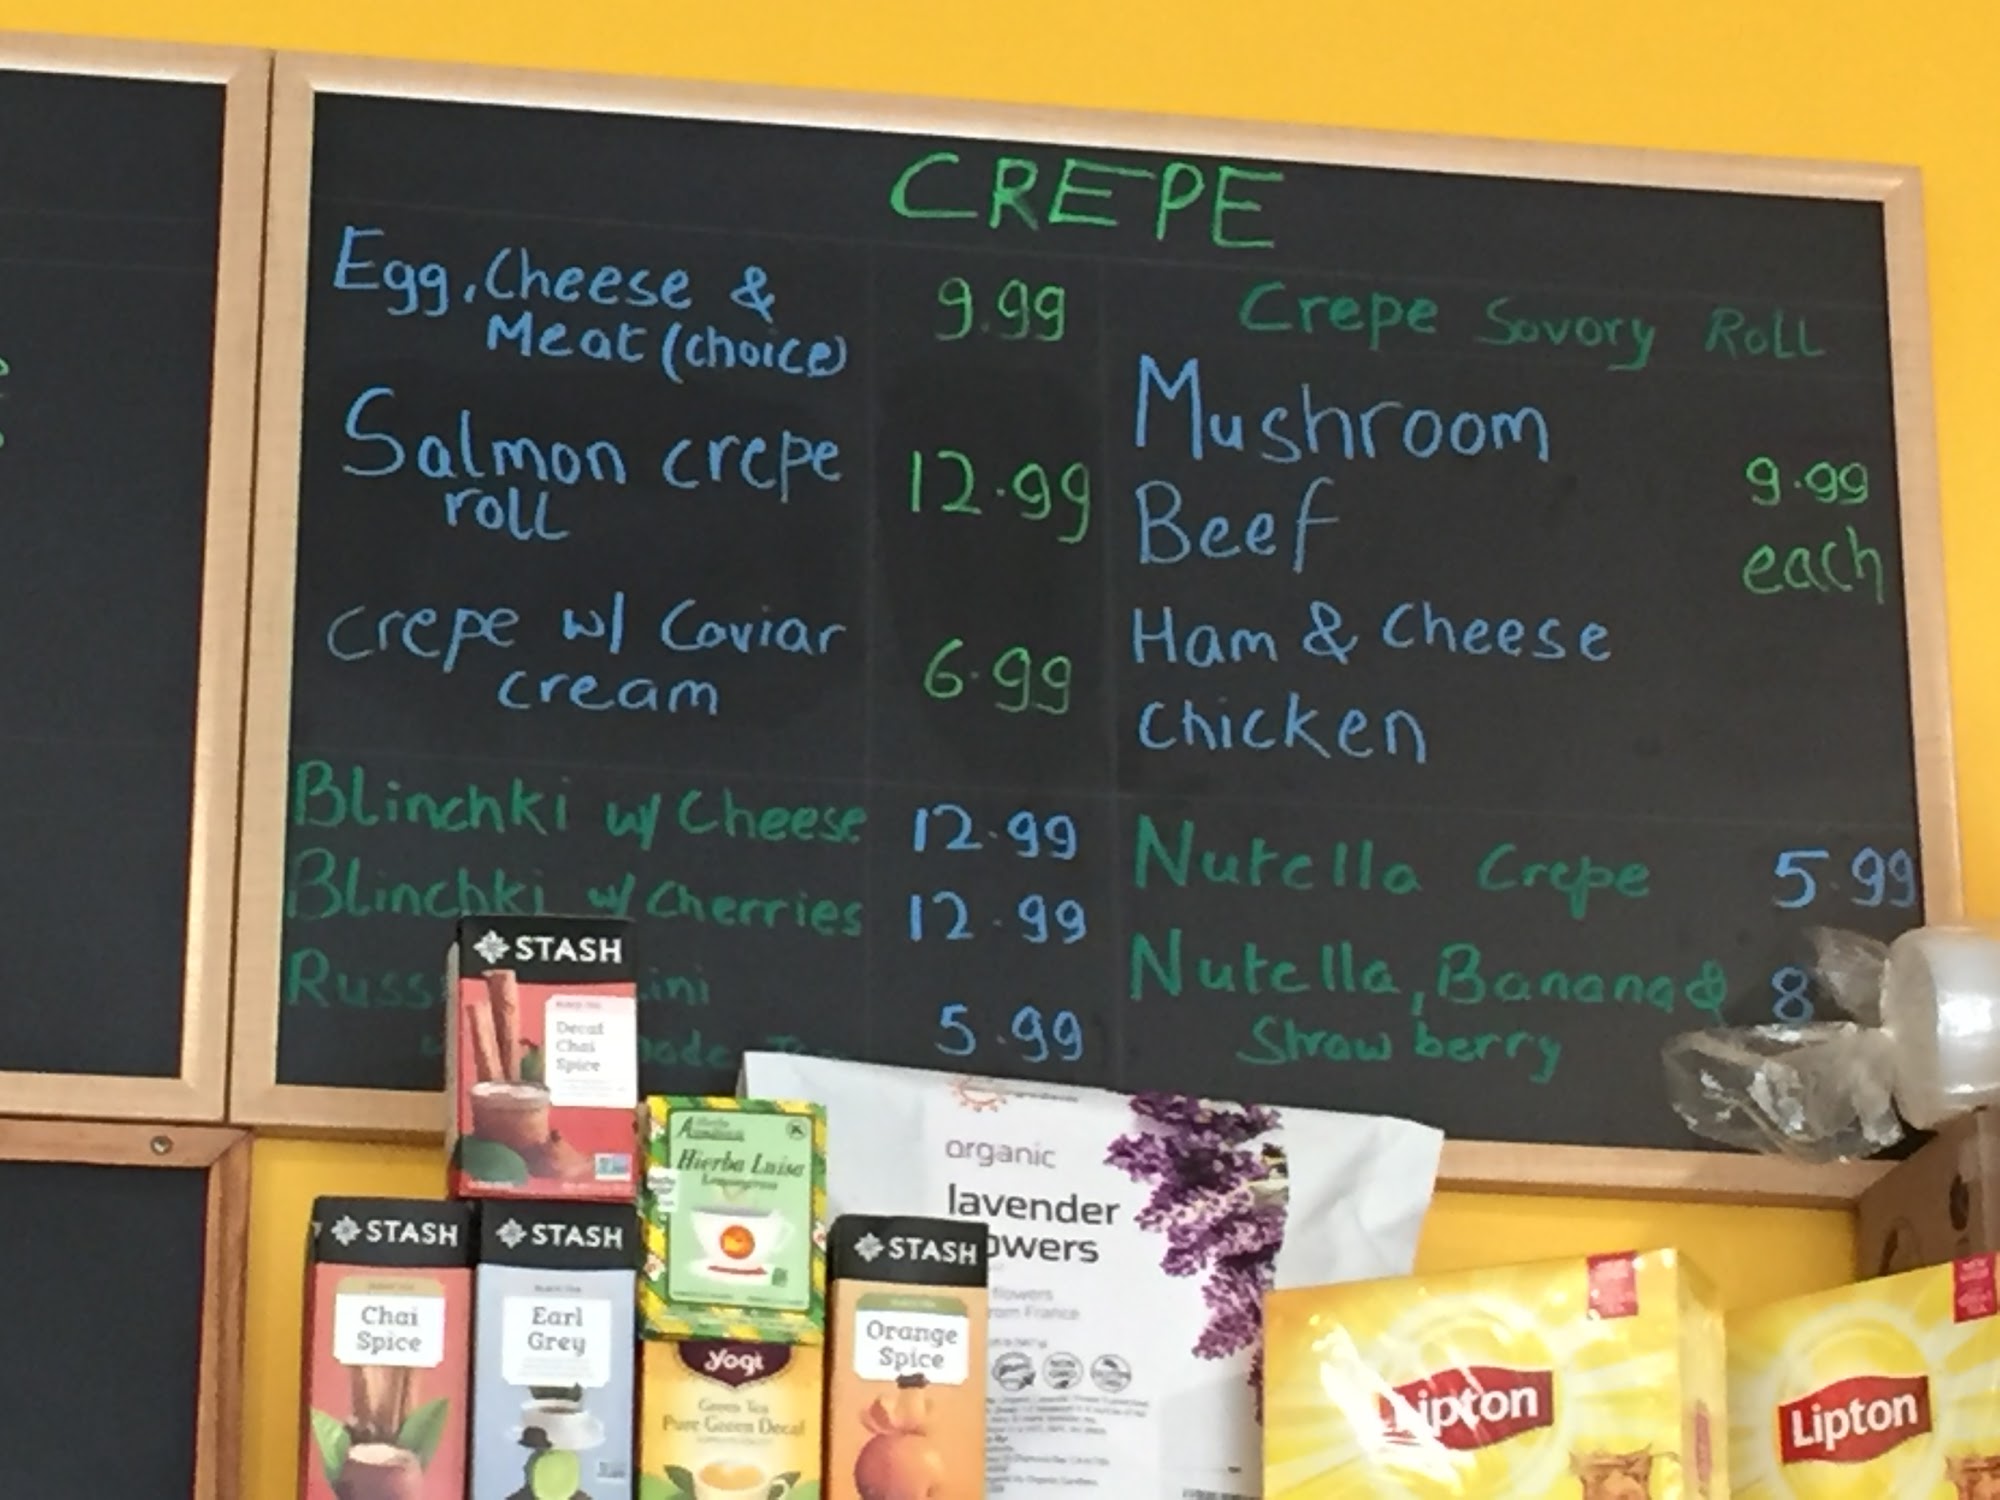 CREPE
Egg, Cheese & 9.99
Meat (choice)
Salmon crepe 12.99
roll
Crepe w/ Caviar 6.99
cream
Blinchki w/ Cheese 12.99
Blinchki w/ Cherries 12.99
5.99
Crepe Sovory Roll
Mushroom
Beef
9.99
each
Ham & Cheese
Chicken
Nutella Crepe 5.99
Nutella, Banana &
Strawberry
STASH
Decaf
Chai
Spice
Hierba Luisa
Lemongrass
organic
lavender
STASH
Chai
Spice
STASH
Earl
Grey
yogi
Green Tea
Pure Green Decaf
STASH
Orange
Spice
flowers
from France
Lipton
Lipton